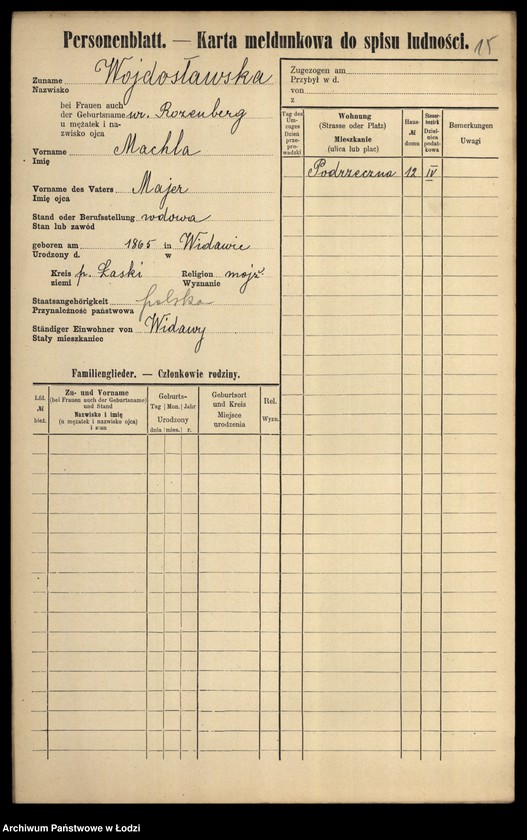 Personenblatt. — Karta meldunkowa do spisu ludności. 15
Zuname Wojdosławska
Nazwisko
bei Frauen auch
der Geburtsname ur. Rozenberg
u mężatek i na-
zwisko ojca
Vorname Machla
Imię
Vorname des Vaters Majer
Imię ojca
Stand oder Berufsstellung wdowa
Stan lub zawód
geboren am 1865 in Widawie
Urodzony d. w
Kreis p. Łaski Religion mojż.
ziemi Wyznanie
Staatsangehörigkeit polska
Przynależność państwowa
Ständiger Einwohner von Widawy
Stały mieszkaniec
Zugezogen am
Przybył w d.
von
z
Tag des Um-zuges
Dzień prze-prowadzki
Wohnung
(Strasse oder Platz)
Mieszkanie
(ulica lub plac)
Haus-
№
domu
Steuer-
bezirk
Dziel-
nica
podat-
kowa
Bemerkungen
Uwagi
Podrzeczna 12 IV
Familienglieder. — Członkowie rodziny.
Lfd.
№
bież.
Zu- und Vorname
(bei Frauen auch der Geburtsname)
und Stand
Nazwisko i imię
(u mężatek i nazwisko ojca)
i stan
Geburts-
Tag | Mon. | Jahr
Urodzony
dnia | mies. | r.
Geburtsort
und Kreis
Miejsce
urodzenia
Rel.
Wyzn.
Archiwum Państwowe w Łodzi